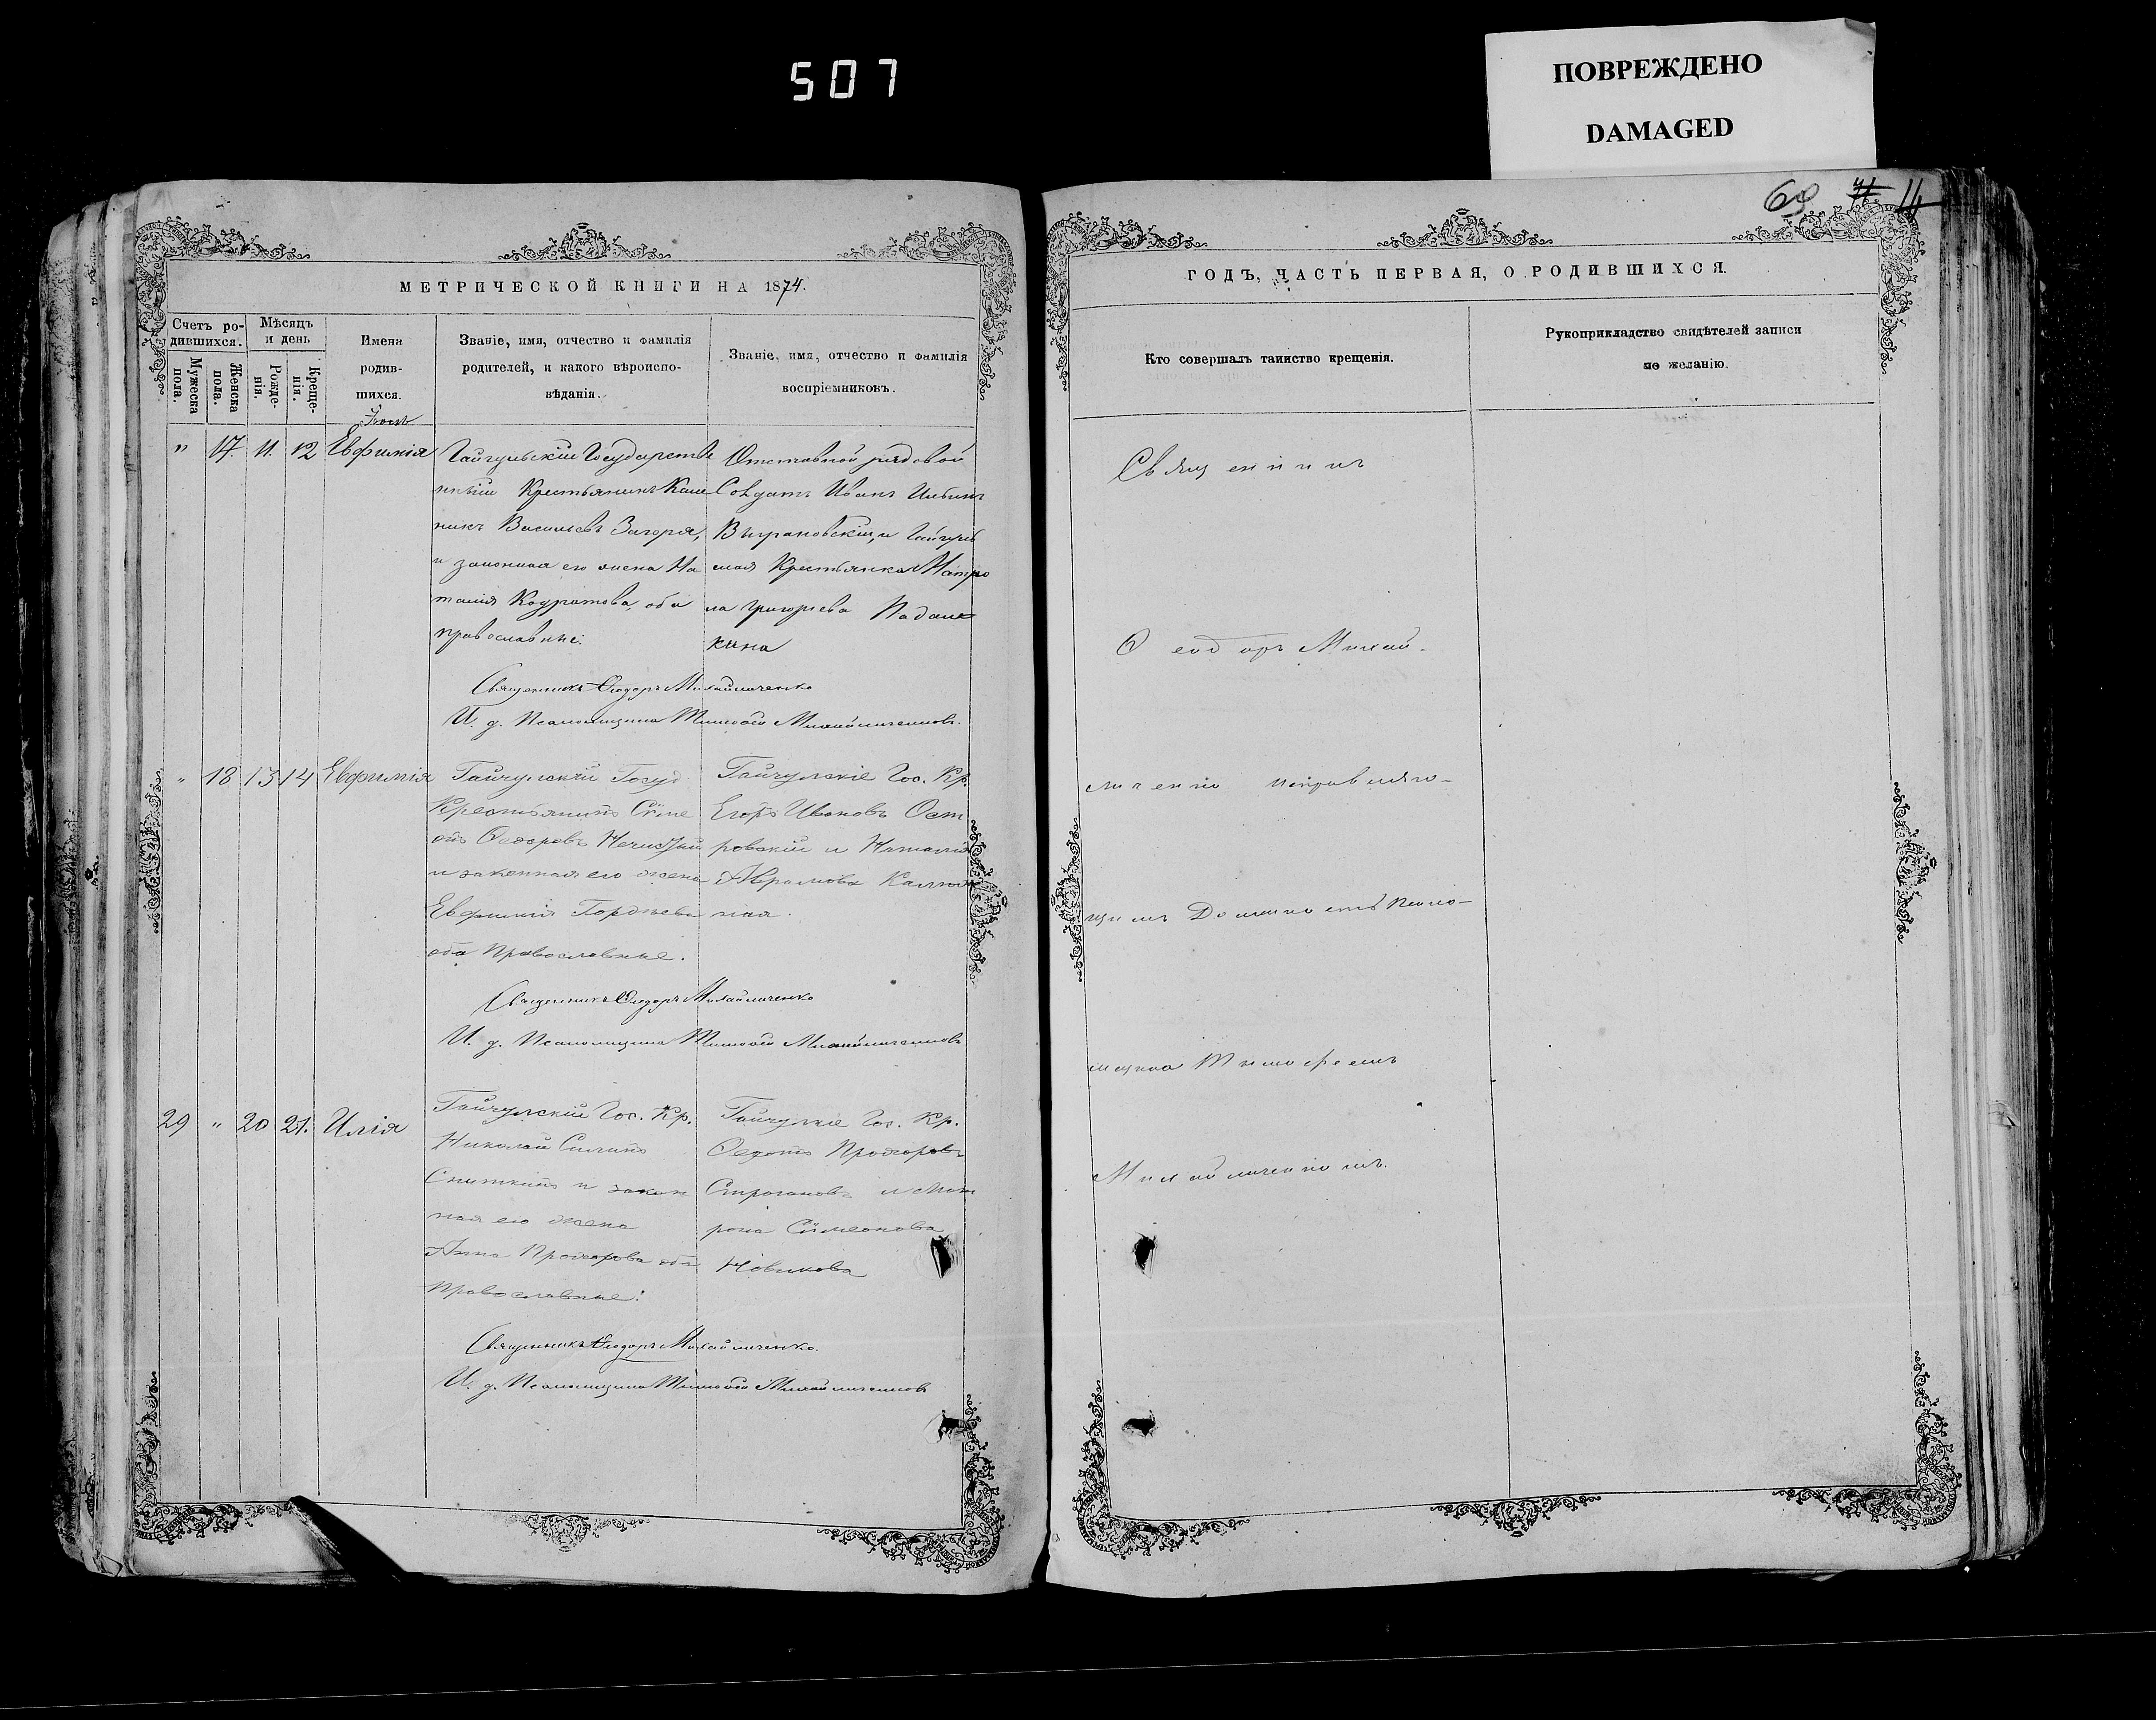 507
ПОВРЕЖДЕНО
DAMAGED
МЕТРИЧЕСКОЙ КНИГИ НА 1874.
Счетъ ро-
дившихся.
Мужеска
пола.
Женска
пола.
Мѣсяцъ
и день
Рожде-
нія.
Креще-
нія.
Имена
родив-
шихся.
Званіе, имя, отчество и фамилія
родителей, и какого вѣроиспо-
вѣданія.
Званіе, имя, отчество и фамилія
воспріемниковъ.
"
17.
11.
12
Евфимія
Гайчульскій Государстве
нный Крестьянинъ
Васильевъ Загоря,
и законная его жена На
талія Кодратова, оба
православные.
Отставной рядовой
Солдатъ Иванъ
и Гайчуль
ская Крестьянка Матро
на Григорьева
кина
Священникъ Ѳеодоръ Михайличенко
И. д. Псаломщика Тимофей Михайличенковъ.
"
18
13
14
Евфимія
Гайчульскій Госуд.
Крестьянинъ Сѵме
онъ Ѳедоровъ
и законная его жена
Евфимія Гордѣева
оба Православные.
Гайчулскіе Гос. Кр.
Егоръ Ивановъ Ост
ровскій и Наталія
Аврамова
ная.
Священникъ Ѳеодоръ Михайличенко
И. д. Псаломщика Тимофей Михайличенковъ
29
"
20
21.
Илія
Гайчулскій Гос. Кр.
Николай Силинъ
Снѣткинъ и закон
ная его жена
Анна Прохорова оба
Православные.
Гайчулскіе Гос. Кр.
Ѳедотъ Прохоровъ
Строгановъ и Мат
рона Сѵмеонова
Новикова
Священникъ Ѳеодоръ Михайличенко.
И. д. Псаломщика Тимофей Михайличенковъ
69
14
ГОДЪ, ЧАСТЬ ПЕРВАЯ, О РОДИВШИХСЯ.
Кто совершалъ таинство крещенія.
Рукоприкладство свидѣтелей записи
по желанію.
Священникъ
Ѳеодоръ Михай-
личенко исправляю-
щимъ Должность Псало-
мщика Тимофеемъ
Михайличенкомъ.